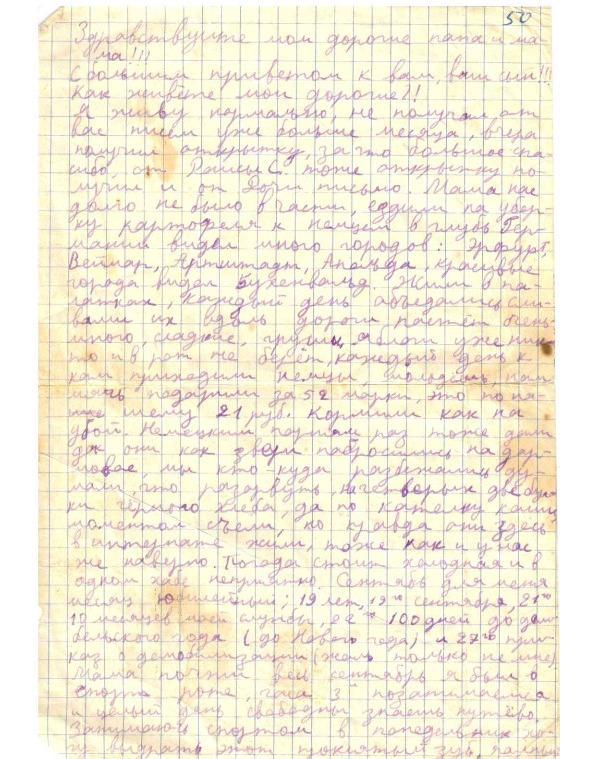 50
Здравствуйте мои дорогие папа и ма-
ма!!!
С большим приветом к вам, ваш сын!!!
Как живёте мои дорогие?!
Я живу нормально, не получал от
вас писем уже больше месяца, вчера
получил открытку, за что большое спа-
сибо, от Раисы С. тоже открытку по-
лучил и от Дочи письмо. Мама нас
долго не было в части, ездили на убор-
ку картофеля к немцам в глубь Гер-
мании видел много городов: Эрфурт,
Веймар, Арнштадт, Апольда, красивые
города видел Бухенвальд. Жили в па-
латках, каждый день объедались сли-
вами их вдоль дороги растёт очень
много, сладкие, груши, яблоки уже ник-
то и в рот не берёт, каждый день к
нам приходили немцы, молодёжь, нам
мячь подарили за 52 марки, это по на-
шему 21 руб. Кормили как на
убой. Немецким партам раз тоже дали
дак они как звери набросились на дар-
мовое, мы кто-куда разбежались ду-
мали что разорвуть, на четверых две бул-
ки чёрного хлеба, да по котелку каши
моментом съели, но правда они здесь
в интернате жили, тоже как и у нас
же наверно. Погода стоит холодная и в
одном хабе неприятно. Сентябрь для меня
месяц юбилейный; 19 лет, 19го сентября, 21го
10 месяцев моей службы, 22го 100 дней до дем-
бельского года (до Нового года) и 27го при-
каз о демобилизации (жаль только не мне).
Мама почти весь сентябрь я был в
спорт роте, часа 3 позанимаемся
и целый день свободны знаешь путёво.
Занимаюсь спортом в понедельник хо-
чу выдрать этот проклятый зуб,